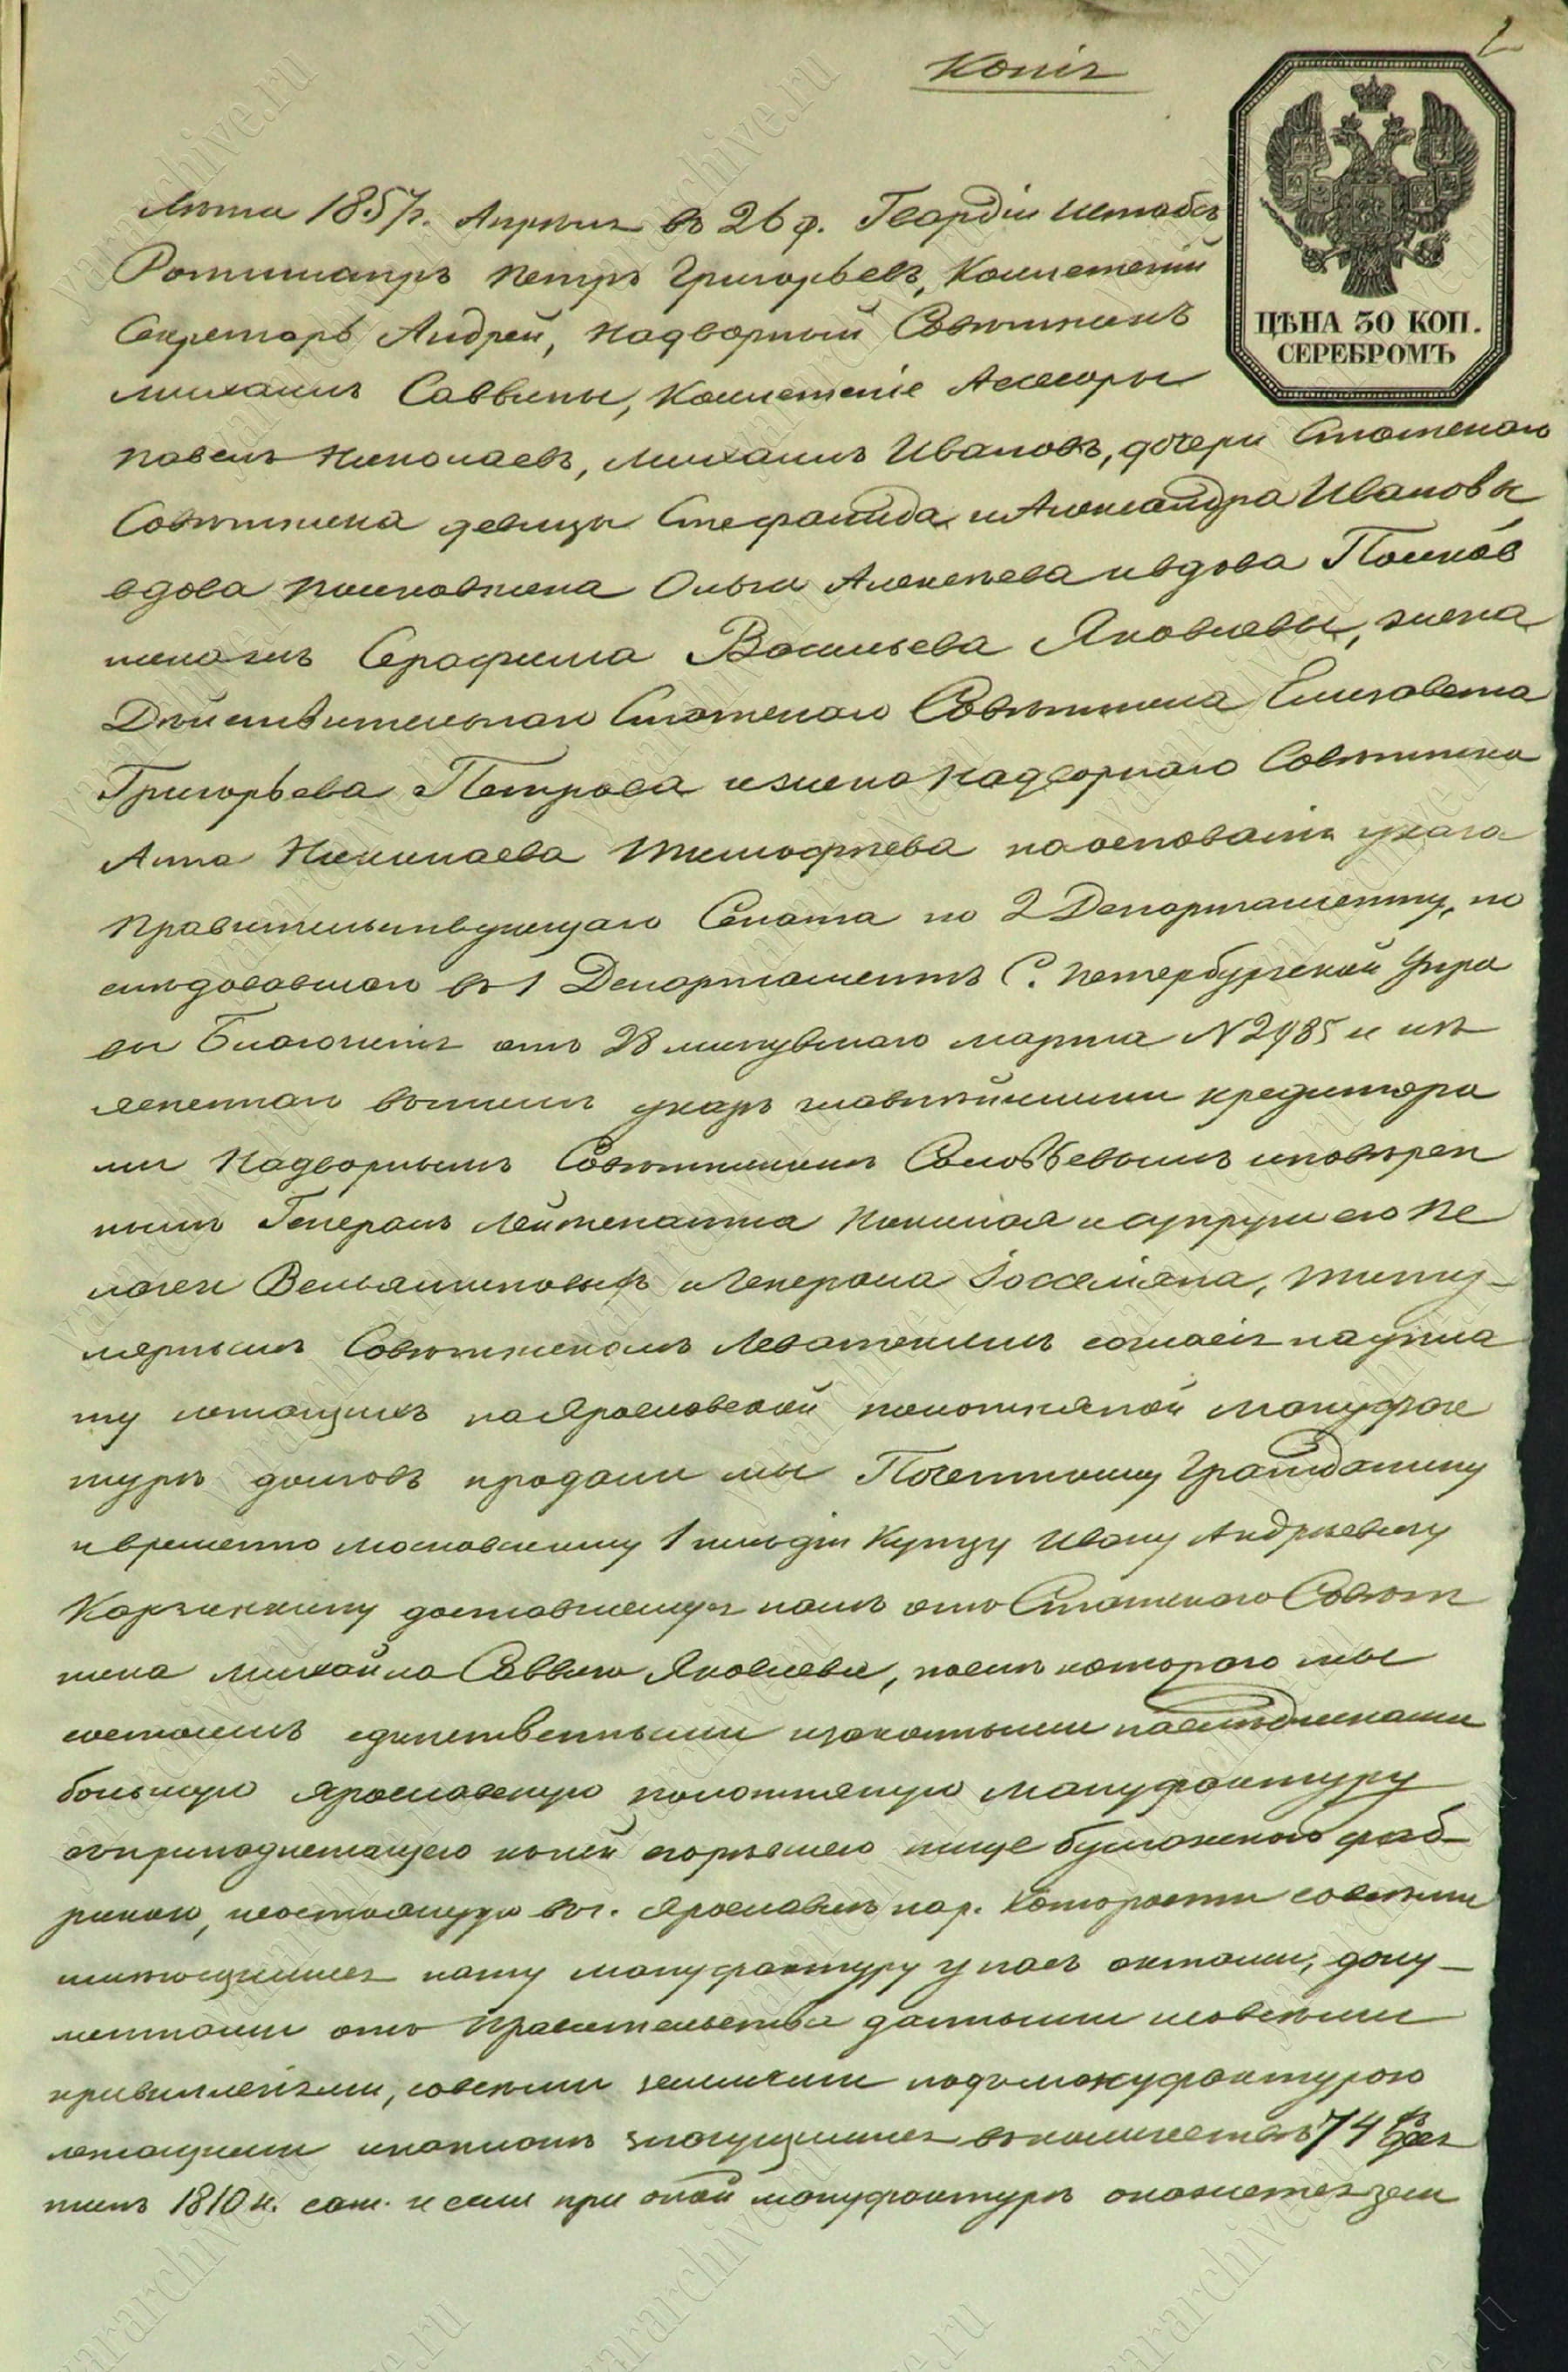 Копія
ЦѢНА 30 КОП.
СЕРЕБРОМЪ
Лѣта 1857 г. Апрѣля въ 26 д. Гвардіи Штабсъ
Ротмистръ Петръ Григорьевъ, Коллежскій
Секретарь Андрей, Надворный Совѣтникъ
Михаилъ Саввины, Коллежскіе Асессоры
Павелъ Николаевъ, Михаилъ Ивановъ, дочери Статскаго
Совѣтника девицы Стефанида и Александра Ивановы
вдова Полковника Ольга Алексѣева и вдова Полков
никъ Серафима Васильева Яковлевы, жена
Дѣйствительнаго Статскаго Совѣтника Елизавета
Григорьева Петрова и жена Надворнаго Совѣтника
Анна Николаева Тимофѣева на основаніи указа
Правительствующаго Сената по 2 Департаменту, по
слѣдовавшаго въ 1 Департаментъ С. Петербургской Упра
вы Благочинія отъ 28 минувшаго марта N 2985 и изъ
ясненнаго въ томъ указѣ главнѣйшими кредитора
ми Надворнымъ Совѣтникомъ Соловьевымъ и повѣрен
нымъ Генералъ Лейтенанта Николая и супруги его Пе
лагеи Вельяминовыхъ и Генерала Іосселіана, титу-
лярнымъ Совѣтникомъ Леватскимъ согласія на упла
ту лежащихъ на Ярославской полотняной мануфак
турѣ долговъ продали мы Почетному Гражданину
и временно московскому 1 гильдіи Купцу Ивану Андрѣевичу
Карзинкину доставшуюся намъ отъ Статскаго Совѣт
ника Михайла Саввича Яковлева, послѣ котораго мы
состоимъ единственными и законными наслѣдниками
большую Ярославскую полотняную мануфактуру
съ принадлежащею къ ней сгорѣвшею писче бумажною фаб-
рикою, состоящую въ г. Ярославлѣ на р. Которости со всѣми
имѣющимися на ту мануфактуру у насъ актами, доку-
ментами отъ Правительства данными и со всѣми
привиллегіями, со всѣми землями подъ мануфактурою
лежащими и по планамъ значущимися въ количествѣ 74 деся
тинъ 1810 к. саж. и если при оной мануфактурѣ окажется зем